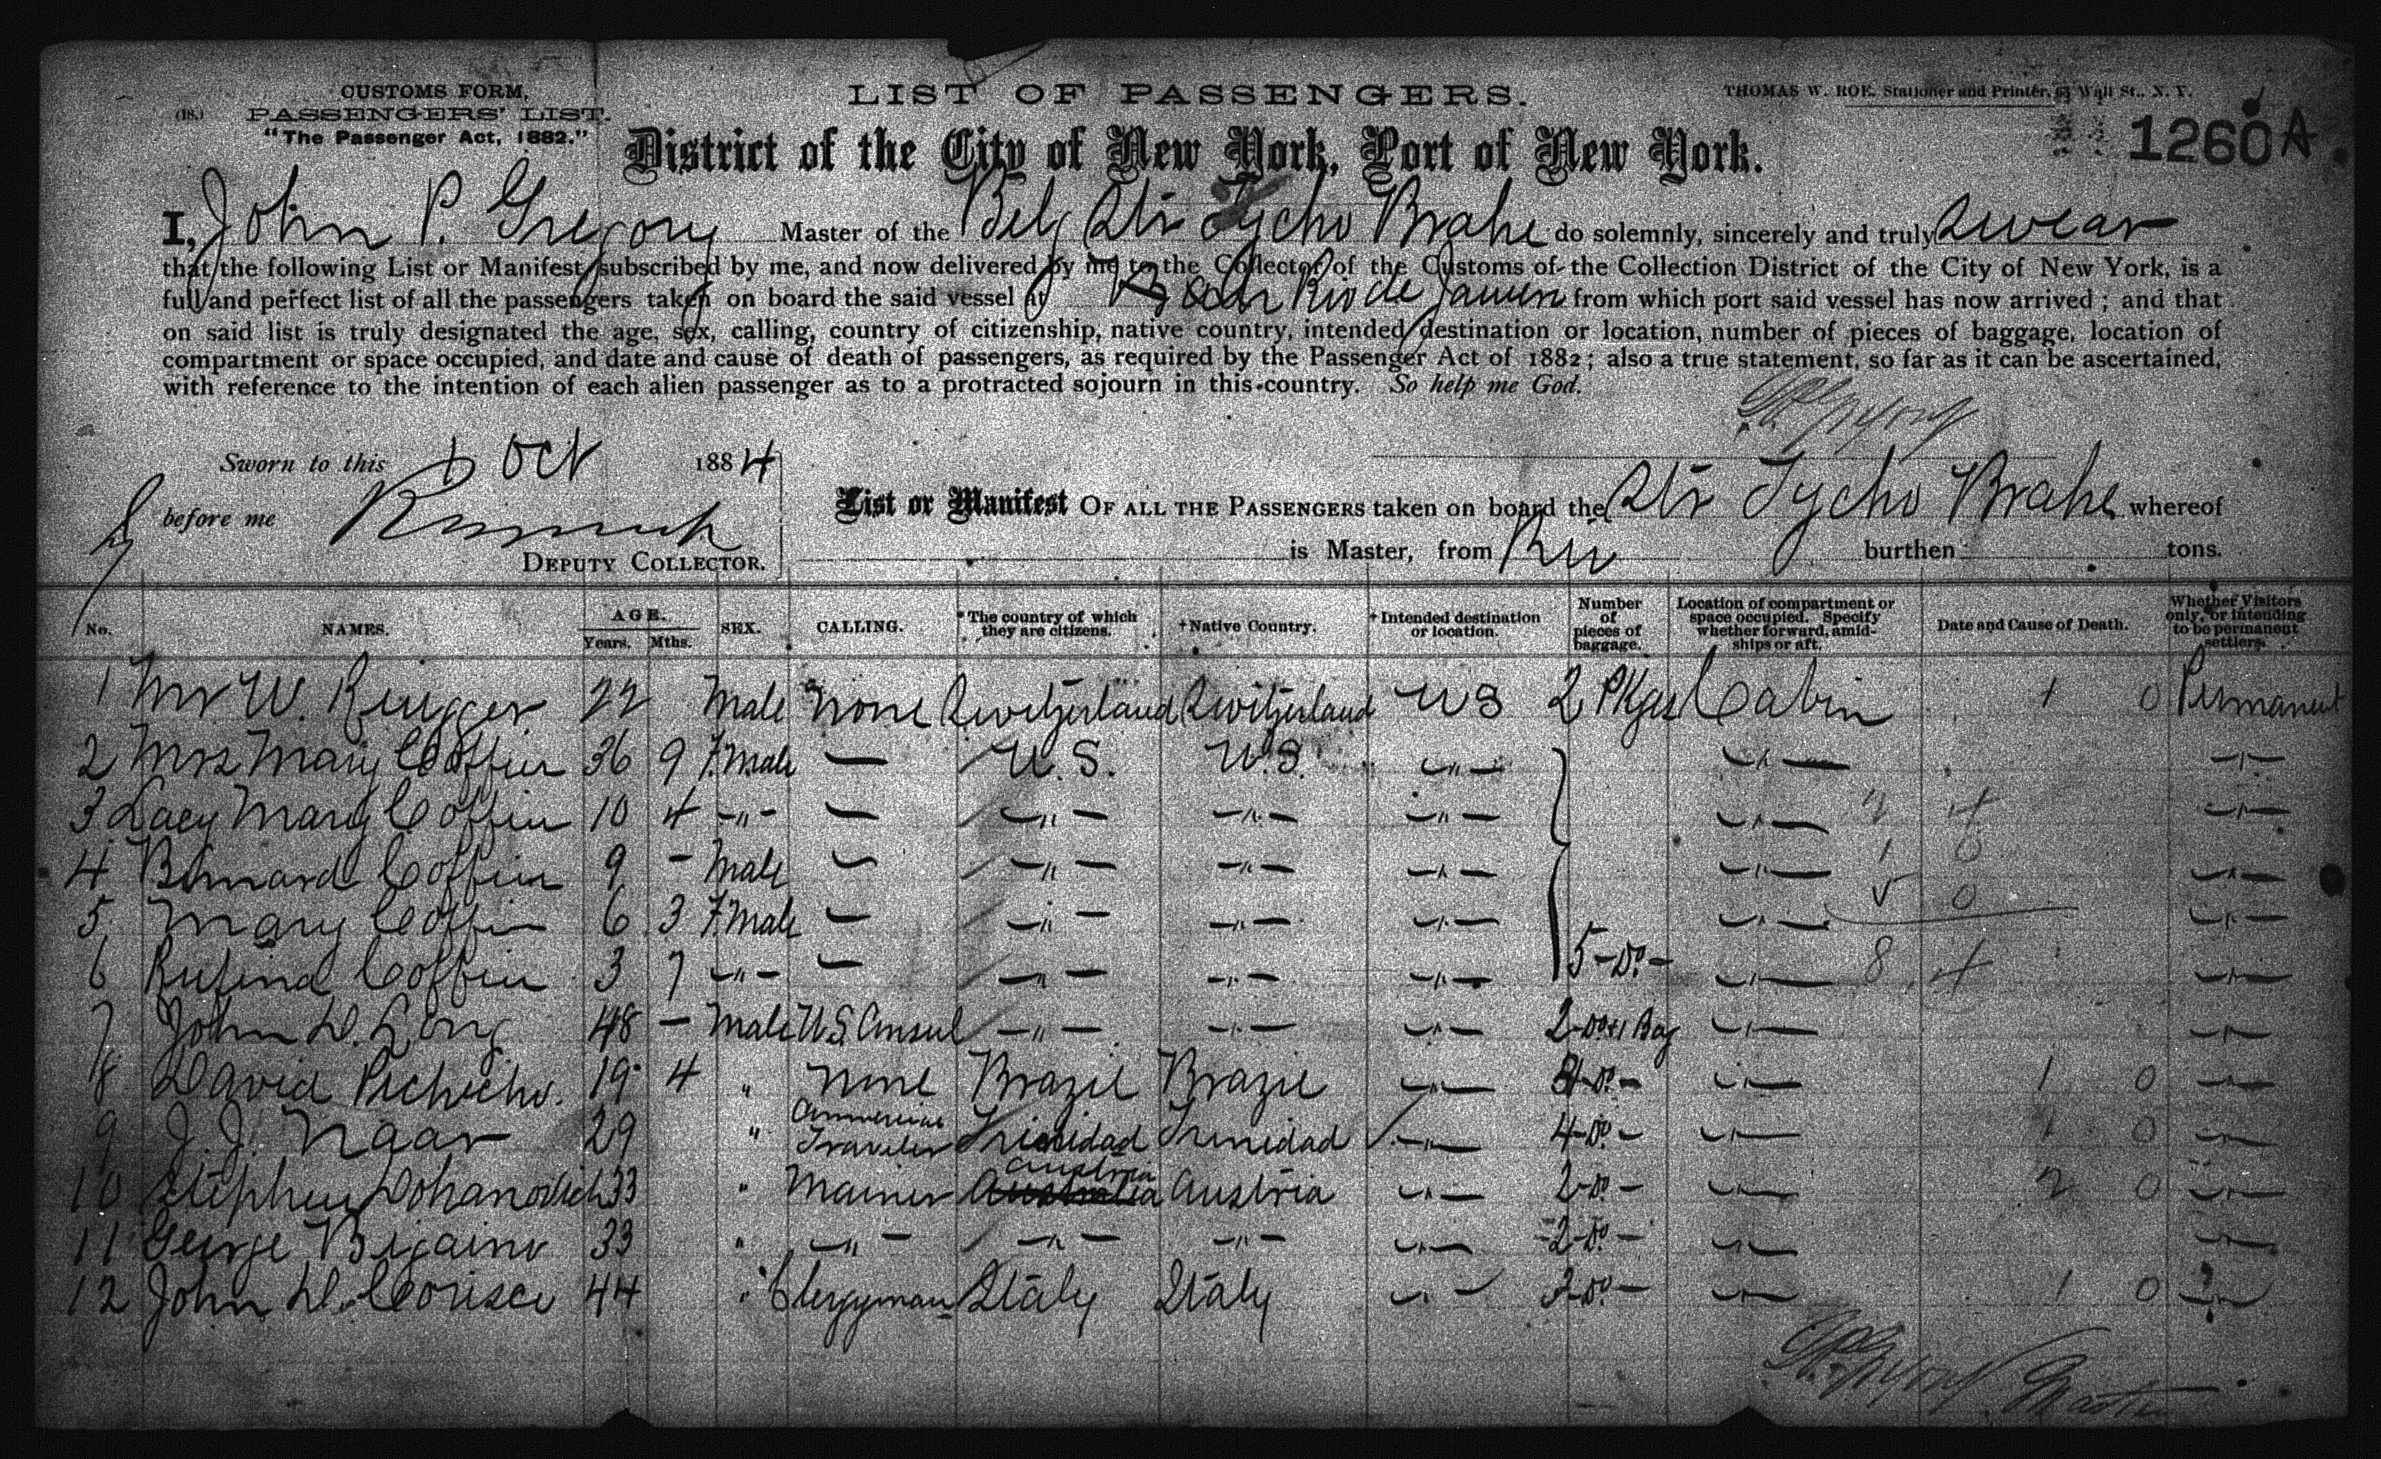 CUSTOMS FORM,
(18.) PASSENGERS' LIST.
"The Passenger Act, 1882."
LIST OF PASSENGERS.
THOMAS W. ROE, Stationer and Printer, 63 Wall St., N. Y.
1260A
District of the City of New York, Port of New York.
I, John P. Gregory Master of the Belg Str Tycho Brahe do solemnly, sincerely and truly swear
that the following List or Manifest, subscribed by me, and now delivered by me to the Collector of the Customs of the Collection District of the City of New York, is a
full and perfect list of all the passengers taken on board the said vessel at Rio de from which port said vessel has now arrived ; and that
on said list is truly designated the age, sex, calling, country of citizenship, native country, intended destination or location, number of pieces of baggage, location of
compartment or space occupied, and date and cause of death of passengers, as required by the Passenger Act of 1882 ; also a true statement, so far as it can be ascertained,
with reference to the intention of each alien passenger as to a protracted sojourn in this country. So help me God.
Sworn to this Oct 1884
before me
DEPUTY COLLECTOR.
List or Manifest OF ALL THE PASSENGERS taken on board the Str Tycho Brahe whereof
is Master, from Rio burthen tons.
No. NAMES. AGE. Years. Mths. SEX. CALLING. *The country of which they are citizens. †Native Country. †Intended destination or location. Number of pieces of baggage. Location of compartment or space occupied. Specify whether forward, amidships or aft. Date and Cause of Death. Whether Visitors only, or intending to be permanent settlers.
1 Mr W. 22 Male None Switzerland Switzerland US 2 Pkgs Cabin 1 0 Permanent
2 Mrs Mary Coffin 36 9 F.Male — U.S. U.S. —"— —"— —"—
3 Lacy Mary Coffin 10 4 -"- — —"— —"— —"— —"— 4 —"—
4 Bernard Coffin 9 - Male — —"— —"— —"— —"— 1 0 —"—
5 Mary Coffin 6 3 F.Male — —"— —"— —"— —"— 0 —"—
6 Rufina Coffin 3 7 -"- — —"— —"— —"— 5-Do- —"— 8 4 —"—
7 John D. Long 48 — Male U.S. Consul —"— —"— —"— 2-Do & 1 Bag —"— —"—
8 David 19 4 " None Brazil Brazil —"— -Do- —"— 1 0 —"—
9 J. J. Naar 29 " Commercial Traveler Trinidad Trinidad —"— 4-Do- —"— 1 0 —"—
10 Stephen 33 " Mariner Austria Austria —"— 2-Do- —"— 2 0 —"—
11 George 33 " —"— —"— —"— —"— 2-Do- —"— —"—
12 John D. 44 " Clergyman Italy Italy —"— -Do- —"— 1 0 —"—
Master